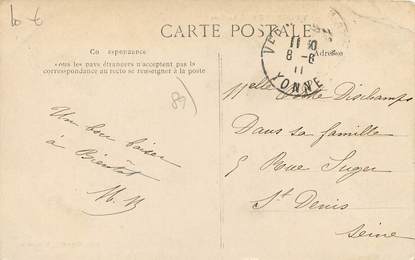 CARTE POSTALE
Correspondance
Tous les pays étrangers n'acceptent pas la
correspondance au recto se renseigner à la poste
Adresse
11
8 - 6
11
YONNE
89
Un bon baiser
à Bientôt
M. M
Melle Dischamps
Dans sa famille
5 Rue Suger
St Denis
Seine